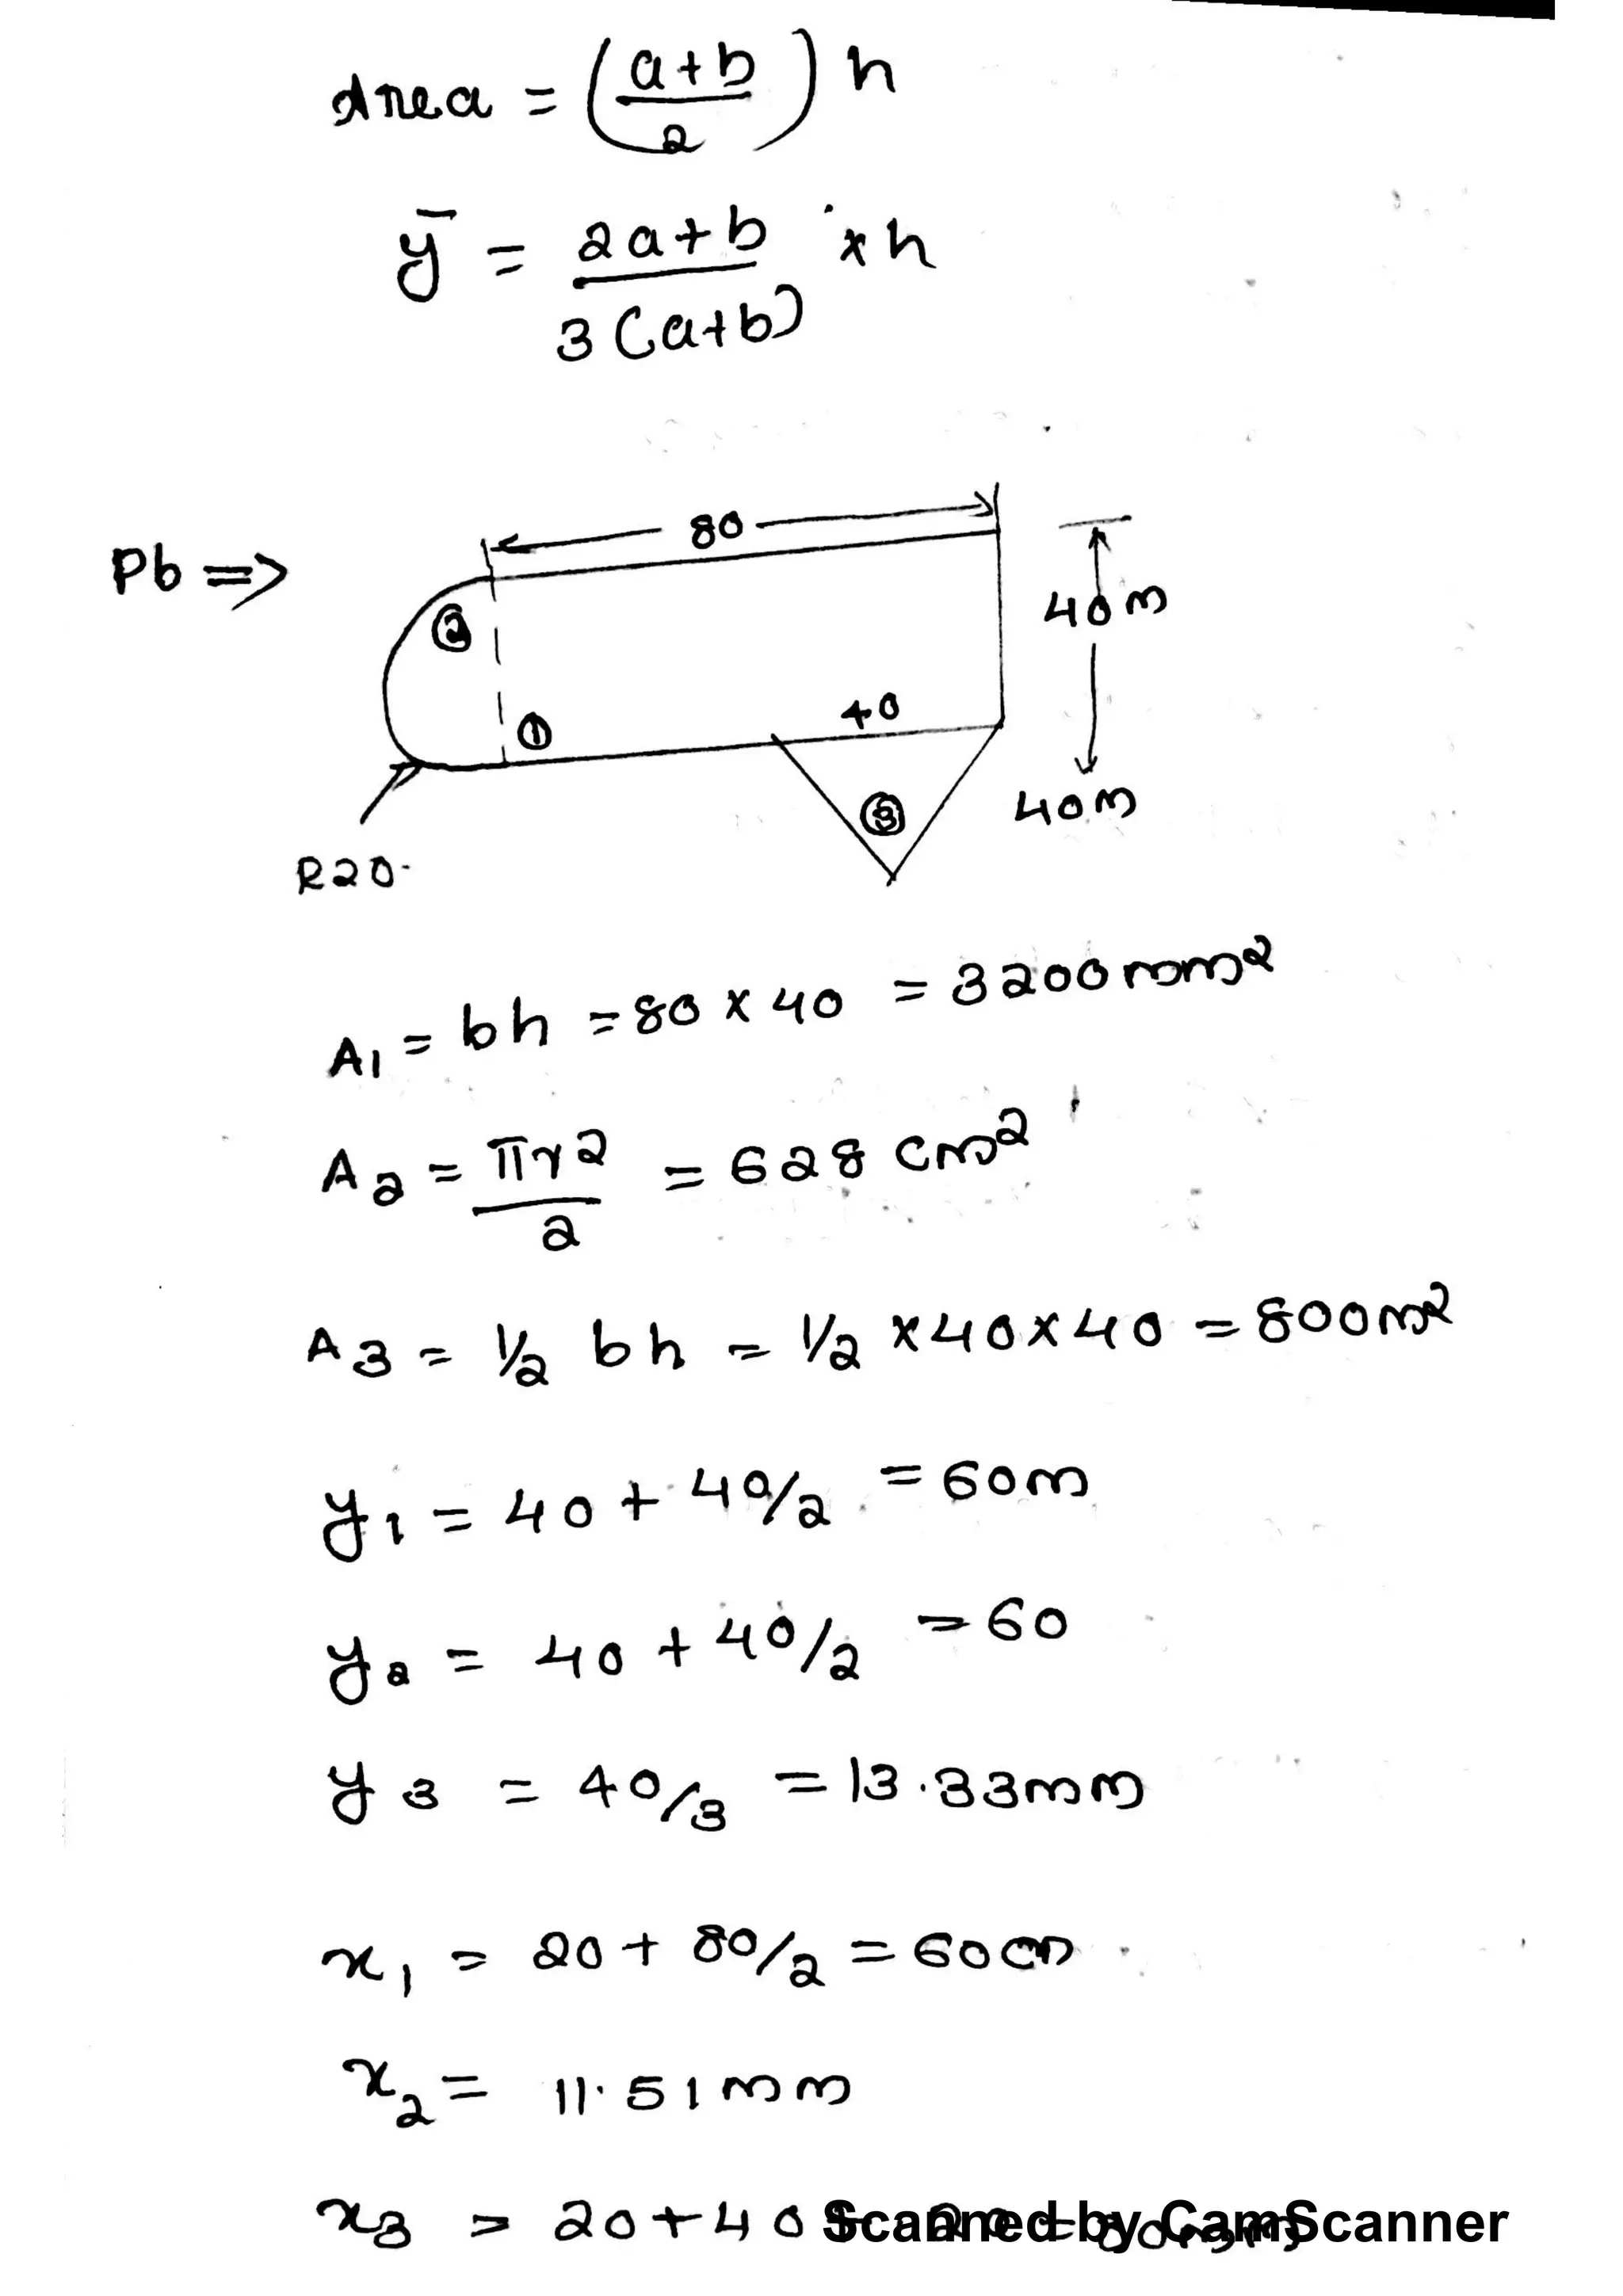 Area = (a+b/2) h
ȳ = 2a+b/3(a+b) × h
80
Pb =>
40m
②
40
①
③
40m
R20
A1 = bh = 80 × 40 = 3200mm²
A2 = πr2/2 = 628 cm²
A3 = 1/2 bh = 1/2 ×40×40 = 800m²
y1 = 40 + 40/2 = 60m
y2 = 40 + 40/2 = 60
y3 = 40/3 = 13.33mm
x1 = 20 + 80/2 = 60cm
x2 = 11.51mm
x3 = 20+40+20 = 80mm
Scanned by CamScanner